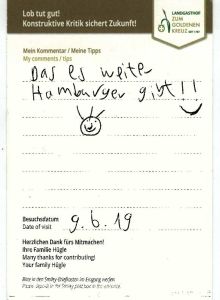 Lob tut gut!
Konstruktive Kritik sichert Zukunft!
LANDGASTHOF
ZUM
GOLDENEN
KREUZ
Mein Kommentar / Meine Tipps
My comments / tips
Das es weiter
Hamburger gibt!!
Besuchsdatum
Date of visit
9.6.19
Herzlichen Dank fürs Mitmachen!
Ihre Familie Hügle
Many thanks for contributing!
Your family Hügle
Bitte in den Smiley-Briefkasten im Eingang werfen
Please deposit in the Smiley post box in the entrance.